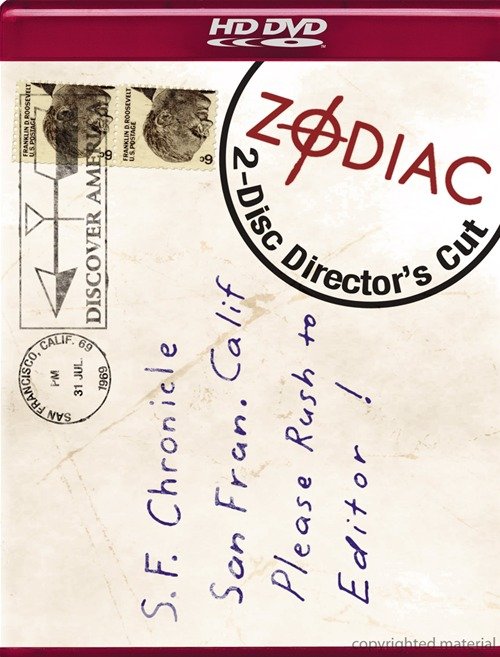 HD DVD
FRANKLIN D. ROOSEVELT
U.S. POSTAGE
6¢
FRANKLIN D. ROOSEVELT
U.S. POSTAGE
6¢
ZODIAC
2-Disc Director's Cut
DISCOVER AMERICA
SAN FRANCISCO, CALIF. 69
PM
31 JUL.
1969
S.F. Chronicle
San Fran. Calif
Please Rush to
Editor !
copyrighted material